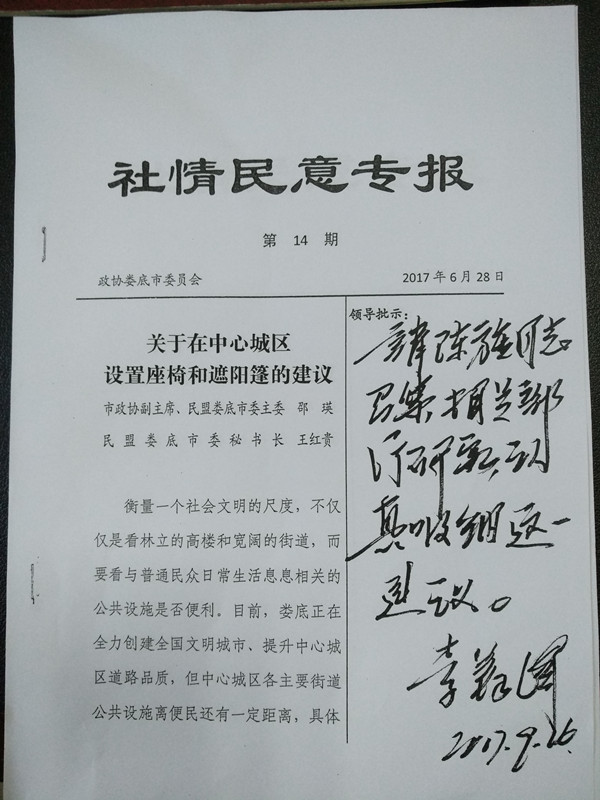 社情民意专报
第 14 期
政协娄底市委员会 2017年6月28日
关于在中心城区
设置座椅和遮阳篷的建议
市政协副主席、民盟娄底市委主委 邵 瑛
民盟娄底市委秘书长 王红贵
衡量一个社会文明的尺度，不仅
仅是看林立的高楼和宽阔的街道，而
要看与普通民众日常生活息息相关的
公共设施是否便利。目前，娄底正在
全力创建全国文明城市、提升中心城
区道路品质，但中心城区各主要街道
公共设施离便民还有一定距离，具体
领导批示：
请陈 同志
召集相关部
门研究，认
真吸纳这一
建议。
李荐国
2017.9.26.